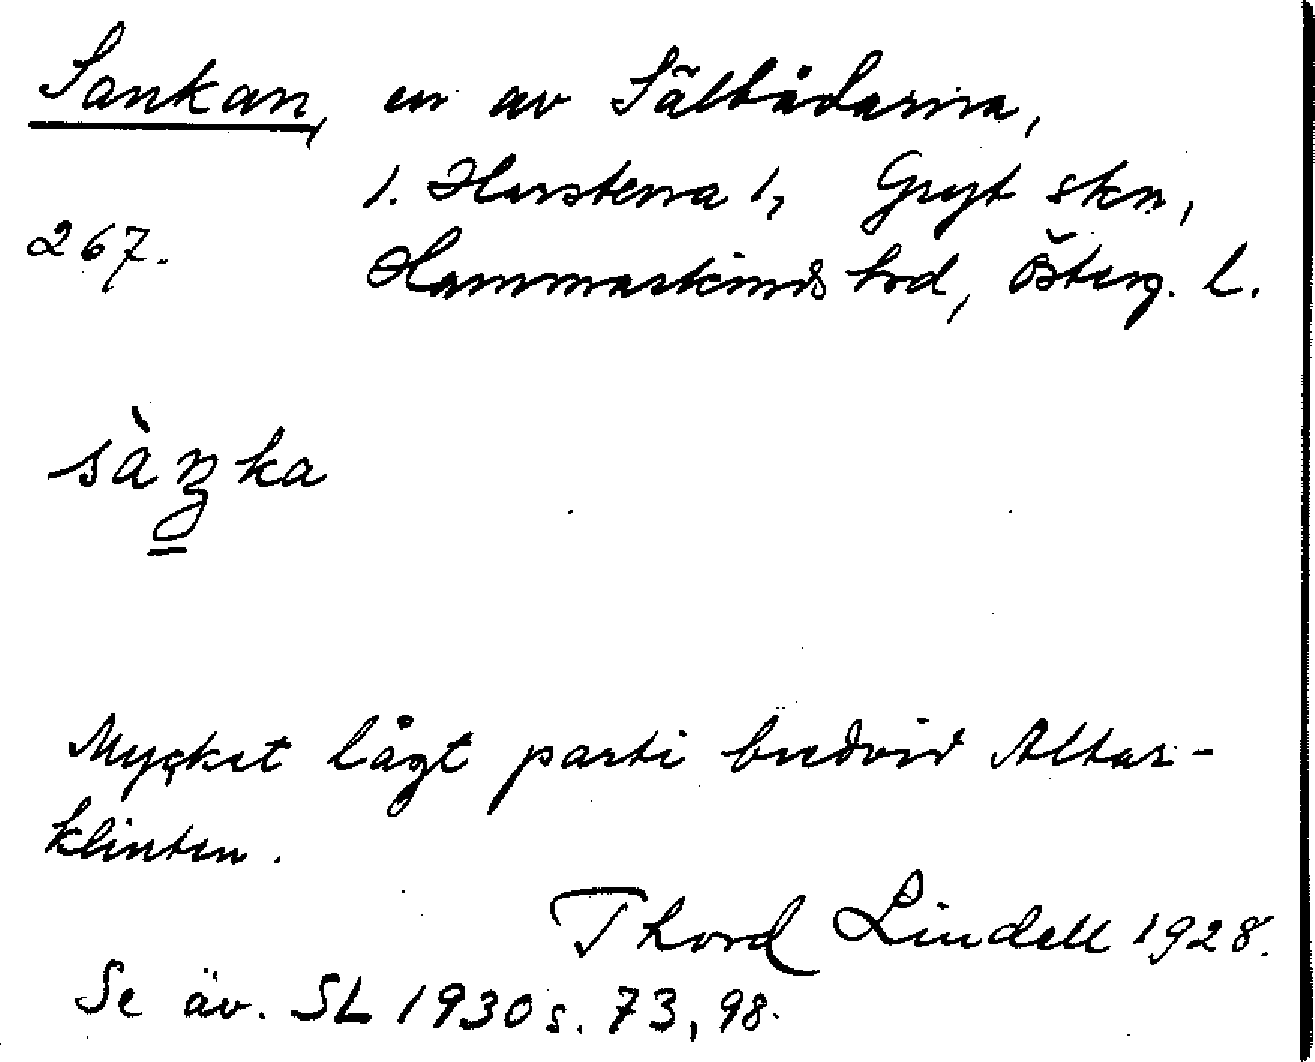 Sankan, en av Sälbådarna,
1. Harstena 1, Gryt skn,
267.
Hammarkinds hrd, Österg. l.
sàŋka
Mycket lågt parti bredvid Altar-
klinten.
Thord Lindell 1928.
Se äv. SL 1930 s. 73, 98.